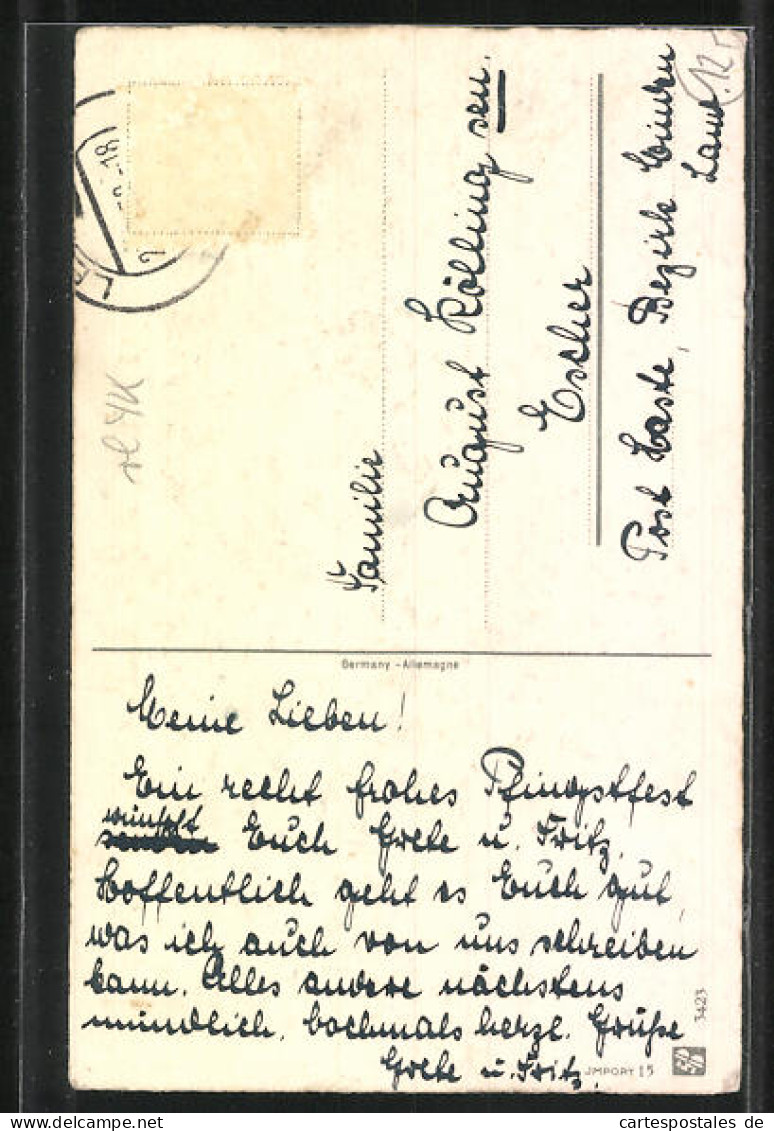 Meine Lieben!
Ein recht frohes Pfingstfest
wünscht
Euch Grete u. Fritz.
Hoffentlich geht es Euch gut,
was ich auch von uns schreiben
kann. Alles andere nächstens
mündlich. Nochmals herzl. Grüße
Grete u. Fritz.
Familie
August Kölling sen.
Escher
Post Haste, Bezirk
Land
12
Germany - Allemagne
18
3423
JMPORT 15
www.cartespostales.de
cartespostales de